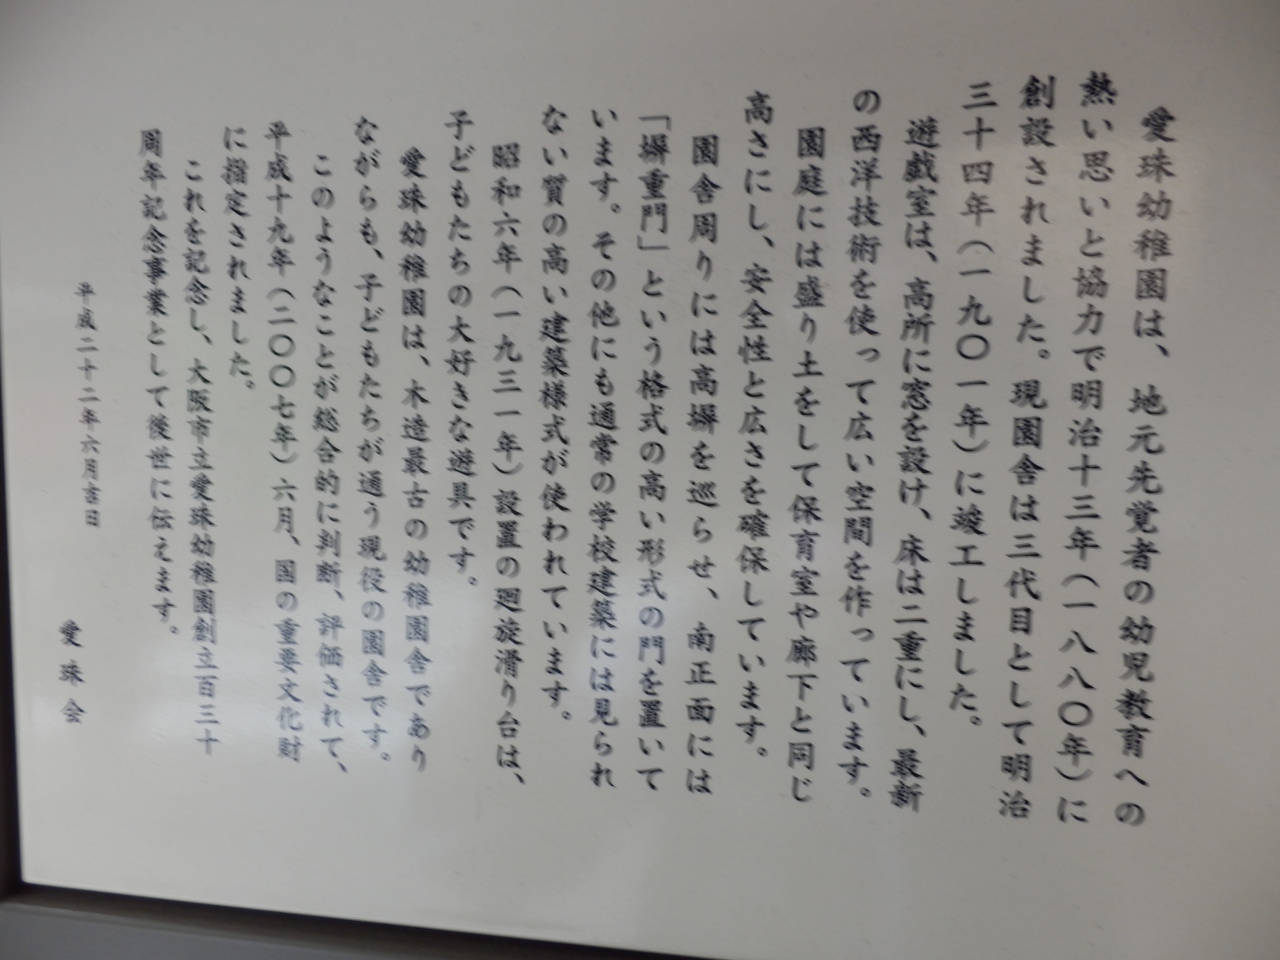 愛珠幼稚園は、地元先覚者の幼児教育への
熱い思いと協力で明治十三年（一八八〇年）に
創設されました。現園舎は三代目として明治
三十四年（一九〇一年）に竣工しました。
遊戯室は、高所に窓を設け、床は二重にし、最新
の西洋技術を使って広い空間を作っています。
園庭には盛り土をして保育室や廊下と同じ
高さにし、安全性と広さを確保しています。
園舎周りには高塀を巡らせ、南正面には
「塀重門」という格式の高い形式の門を置いて
います。その他にも通常の学校建築には見られ
ない質の高い建築様式が使われています。
昭和六年（一九三一年）設置の廻旋滑り台は、
子どもたちの大好きな遊具です。
愛珠幼稚園は、木造最古の幼稚園舎であり
ながらも、子どもたちが通う現役の園舎です。
このようなことが総合的に判断、評価されて、
平成十九年（二〇〇七年）六月、国の重要文化財
に指定されました。
これを記念し、大阪市立愛珠幼稚園創立百三十
周年記念事業として後世に伝えます。
平成二十二年六月吉日
愛珠会